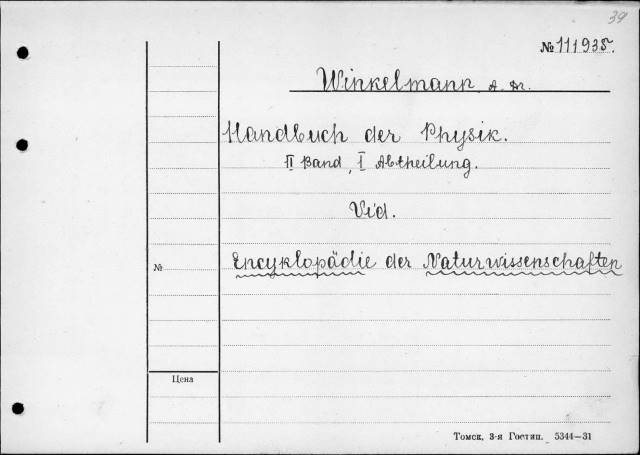 39
№ 111935.
Winkelmann, A. Dr.
Handbuch der Physik.
II Band, I Abtheilung.
Vid.
Encyklopädie der Naturwissenschaften
№
Цена
Томск, 3-я Гостип. 5344—31